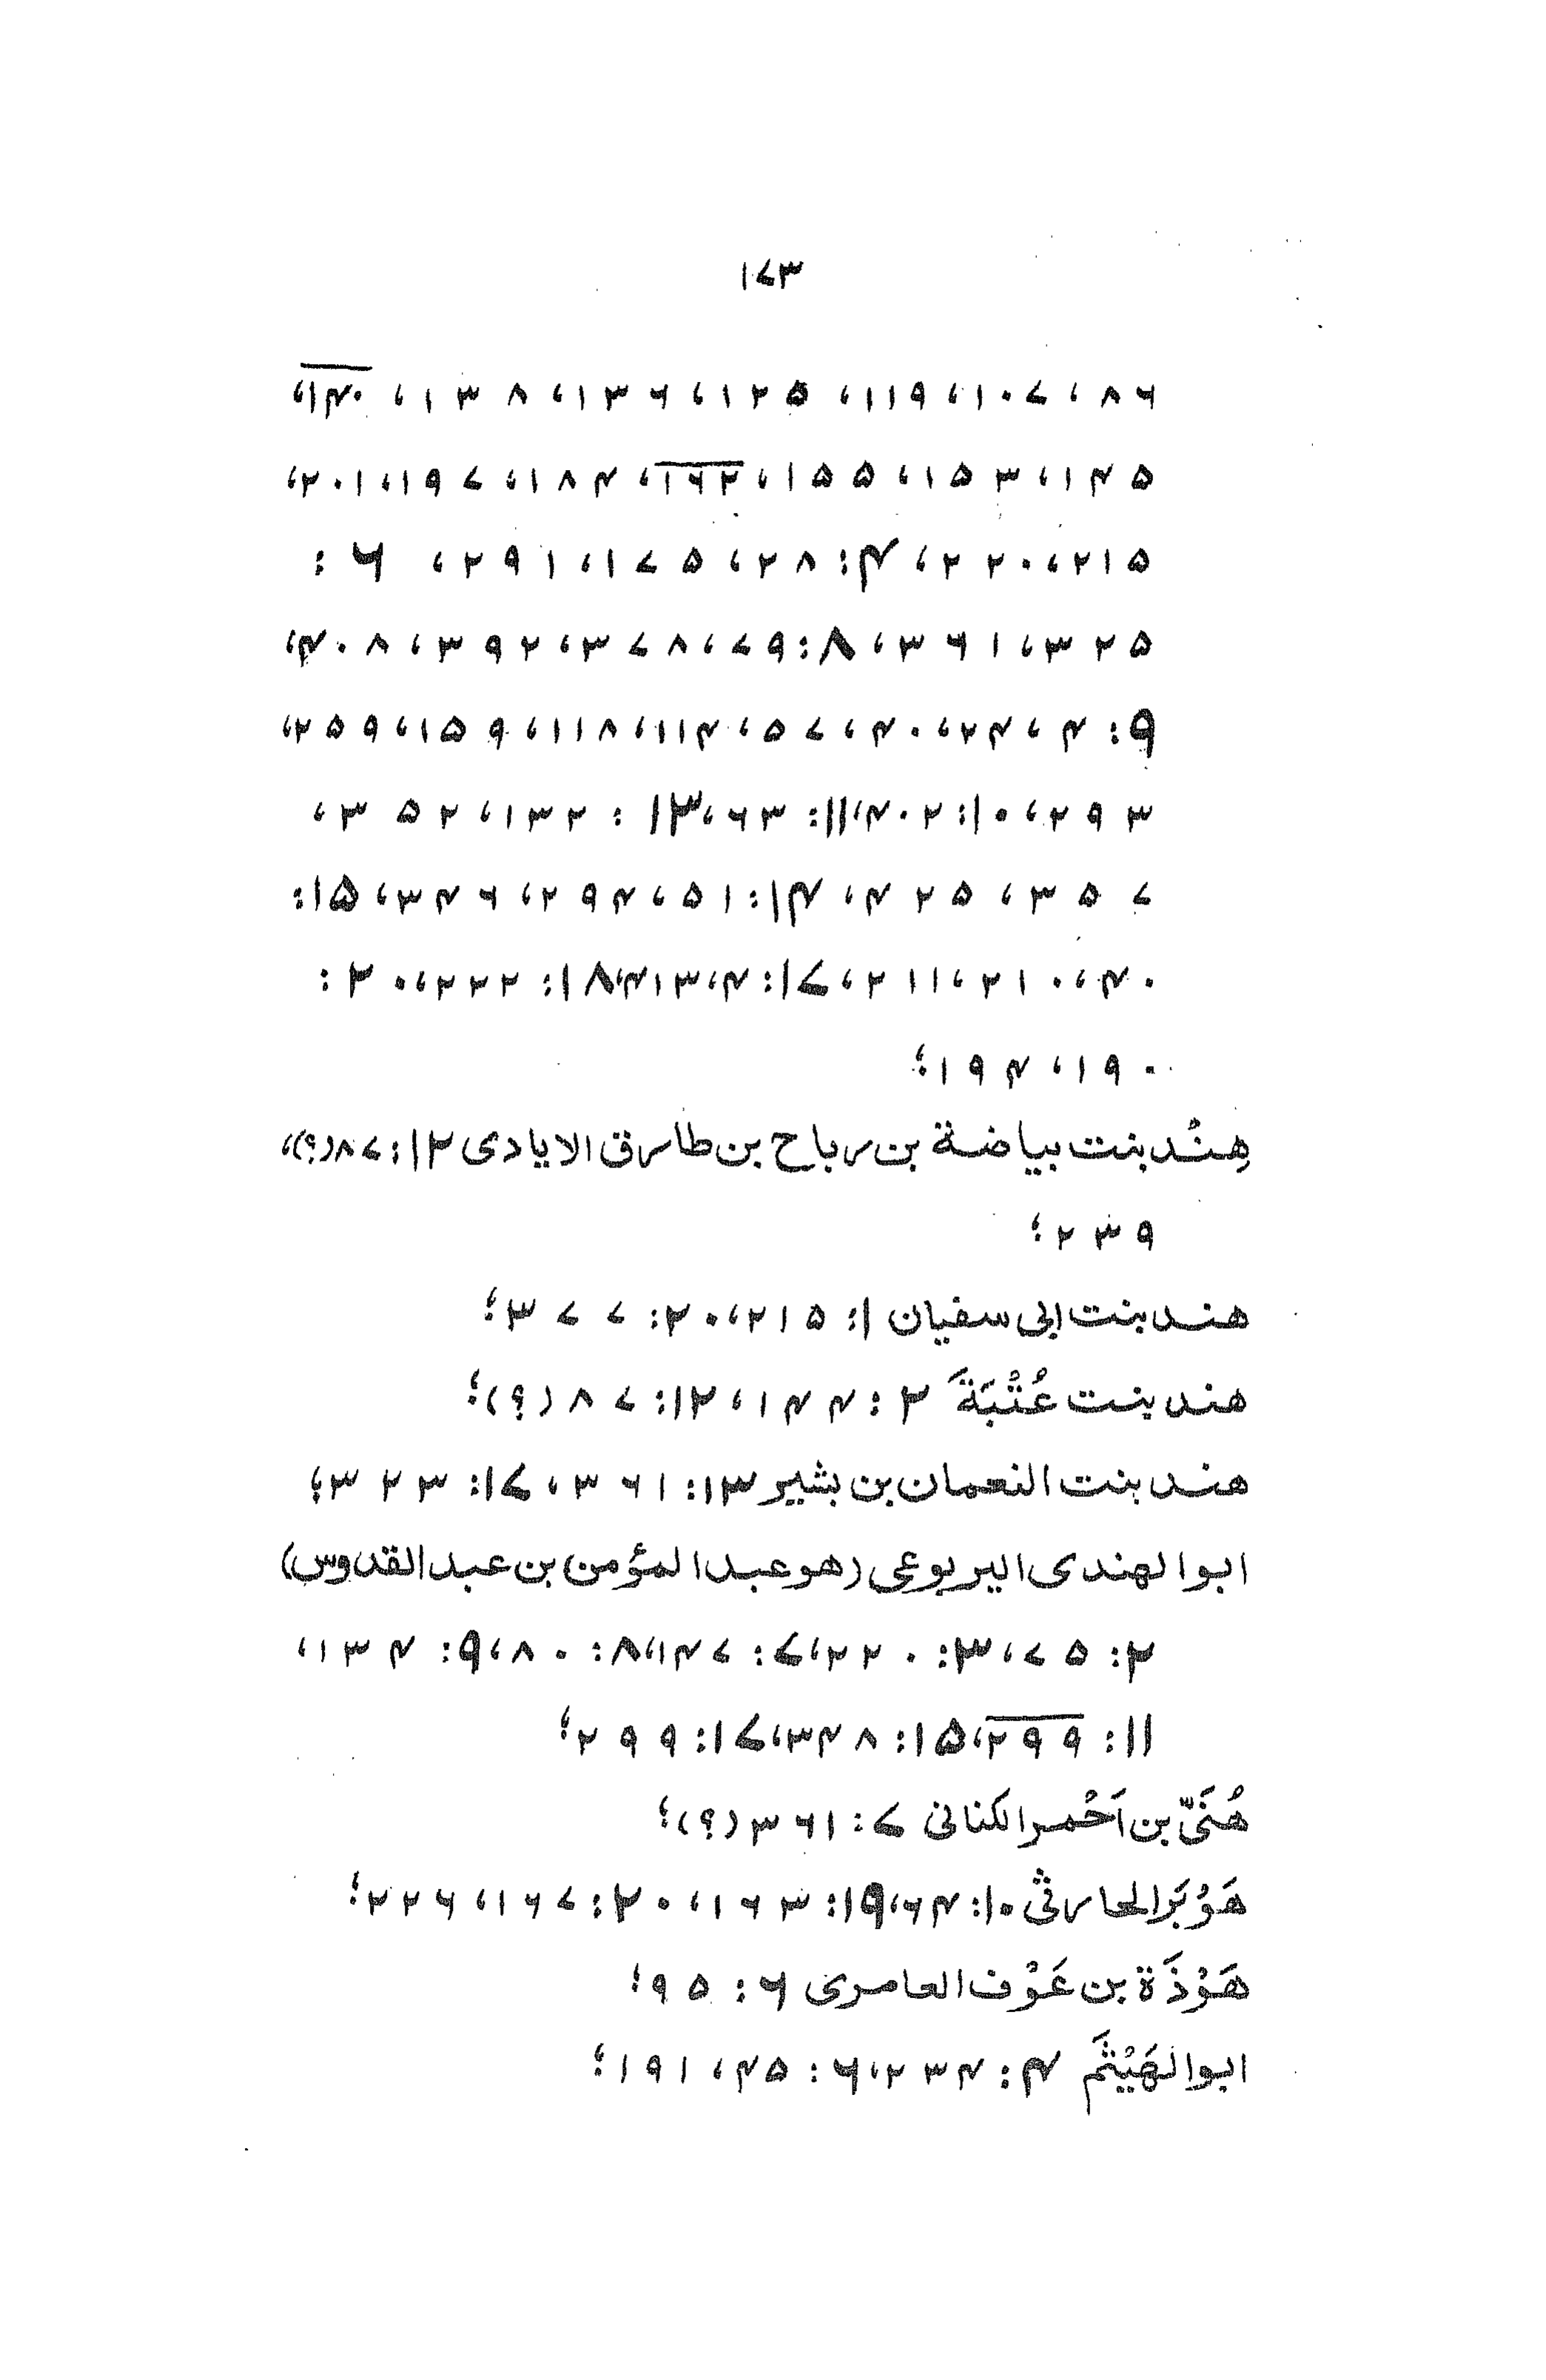 ۱۷۳
۸۶، ۱۰۷، ۱۱۹، ۱۲۵، ۱۳۶، ۱۳۸، ۱۴۰،
۱۴۵، ۱۵۳، ۱۵۵، ۱۶۲، ۱۸۴، ۱۹۷، ۲۰۱،
۲۱۵، ۲۲۰، ۴: ۲۸، ۱۷۵، ۲۹۱، ۶:
۳۲۵، ۳۶۱، ۸: ۷۹، ۳۷۸، ۳۹۲، ۴۰۸،
۹: ۴، ۲۴، ۴۰، ۵۷، ۱۱۴، ۱۱۸، ۱۵۹، ۲۵۹،
۲۹۳، ۱۰: ۴۰۲، ۱۱: ۶۳، ۱۳: ۱۳۲، ۳۵۲،
۳۵۷، ۴۲۵، ۱۴: ۵۱، ۲۹۴، ۳۴۶، ۱۵:
۴۰، ۲۱۰، ۲۱۱، ۱۷: ۴، ۴۱۳، ۱۸: ۲۲۲، ۲۰:
۱۹۰، ۱۹۴؛
هِنْد بنت بياضة بن رباح بن طارق الايادى ۱۲: ۸۷(؟)،
۲۳۹؛
هند بنت ابى سفيان ۱: ۲۱۵، ۲۰: ۳۷۷؛
هند بنت عُتْبَةَ ۲: ۱۴۴، ۱۲: ۸۷ (؟)؛
هند بنت النعمان بن بشير ۱۳: ۳۶۱، ۱۷: ۳۲۳؛
ابو الهندى اليربوعى (هو عبد المؤمن بن عبد القدوس)
۲: ۷۵، ۳: ۲۲۰، ۷: ۱۴۷، ۸: ۸۰، ۹: ۱۳۴،
۱۱: ۲۹۹، ۱۵: ۳۴۸، ۱۷: ۲۹۹؛
هُنَىّ بن اَحْمر الكنانى ۷: ۳۶۱ (؟)؛
هَوْبَر الحارثى ۱۰: ۶۴، ۱۹: ۱۶۳، ۲۰: ۱۶۷، ۲۲۶؛
هَوْذَة بن عَوْف العامرى ۶: ۹۵؛
ابو الهَيْثَم ۴: ۲۳۴، ۶: ۴۵، ۱۹۱؛